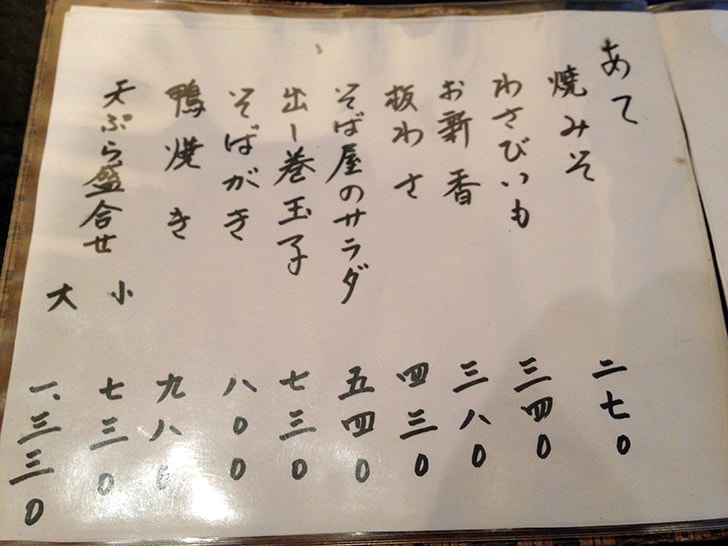 あて
焼みそ 二七〇
わさびいも 三四〇
お新香 三八〇
板わさ 四三〇
そば屋のサラダ 五四〇
出し巻玉子 七三〇
そばがき 八〇〇
鴨焼き 九八〇
天ぷら盛合せ 小 七三〇
大 一、三三〇